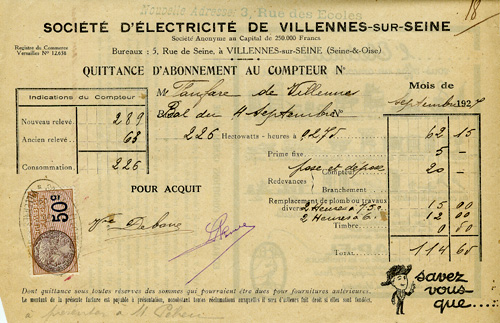 Nouvelle Adresse: 3, Rue des Ecoles
18
SOCIÉTÉ D'ÉLECTRICITÉ DE VILLENNES-SUR-SEINE
Société Anonyme au Capital de 250.000 Francs
Registre du Commerce
Versailles Nº 12.638
Bureaux : 5, Rue de Seine, à VILLENNES-sur-SEINE (Seine-&-Oise)
QUITTANCE D'ABONNEMENT AU COMPTEUR Nº
Mois de
Septembre 1927
M Fanfare de Villennes
Bal du 4 Septembre
Indications du Compteur
Nouveau relevé 289
Ancien relevé 63
Consommation 226
226 Hectowatts-heures à 0275 62 15
Prime fixe 5 -
pose et dépose
Redevances Compteur 20 -
Branchement
Remplacement de plomb ou travaux
divers 2 Heures à 7.50 15 00
2 Heures à 6. 12 00
Timbre 0 50
TOTAL 114 65
POUR ACQUIT
50c
Vve Debove
savez
vous-
que....
Dont quittance sous toutes réserves des sommes qui pourraient être dues pour fournitures antérieures.
Le montant de la présente facture est payable à présentation,